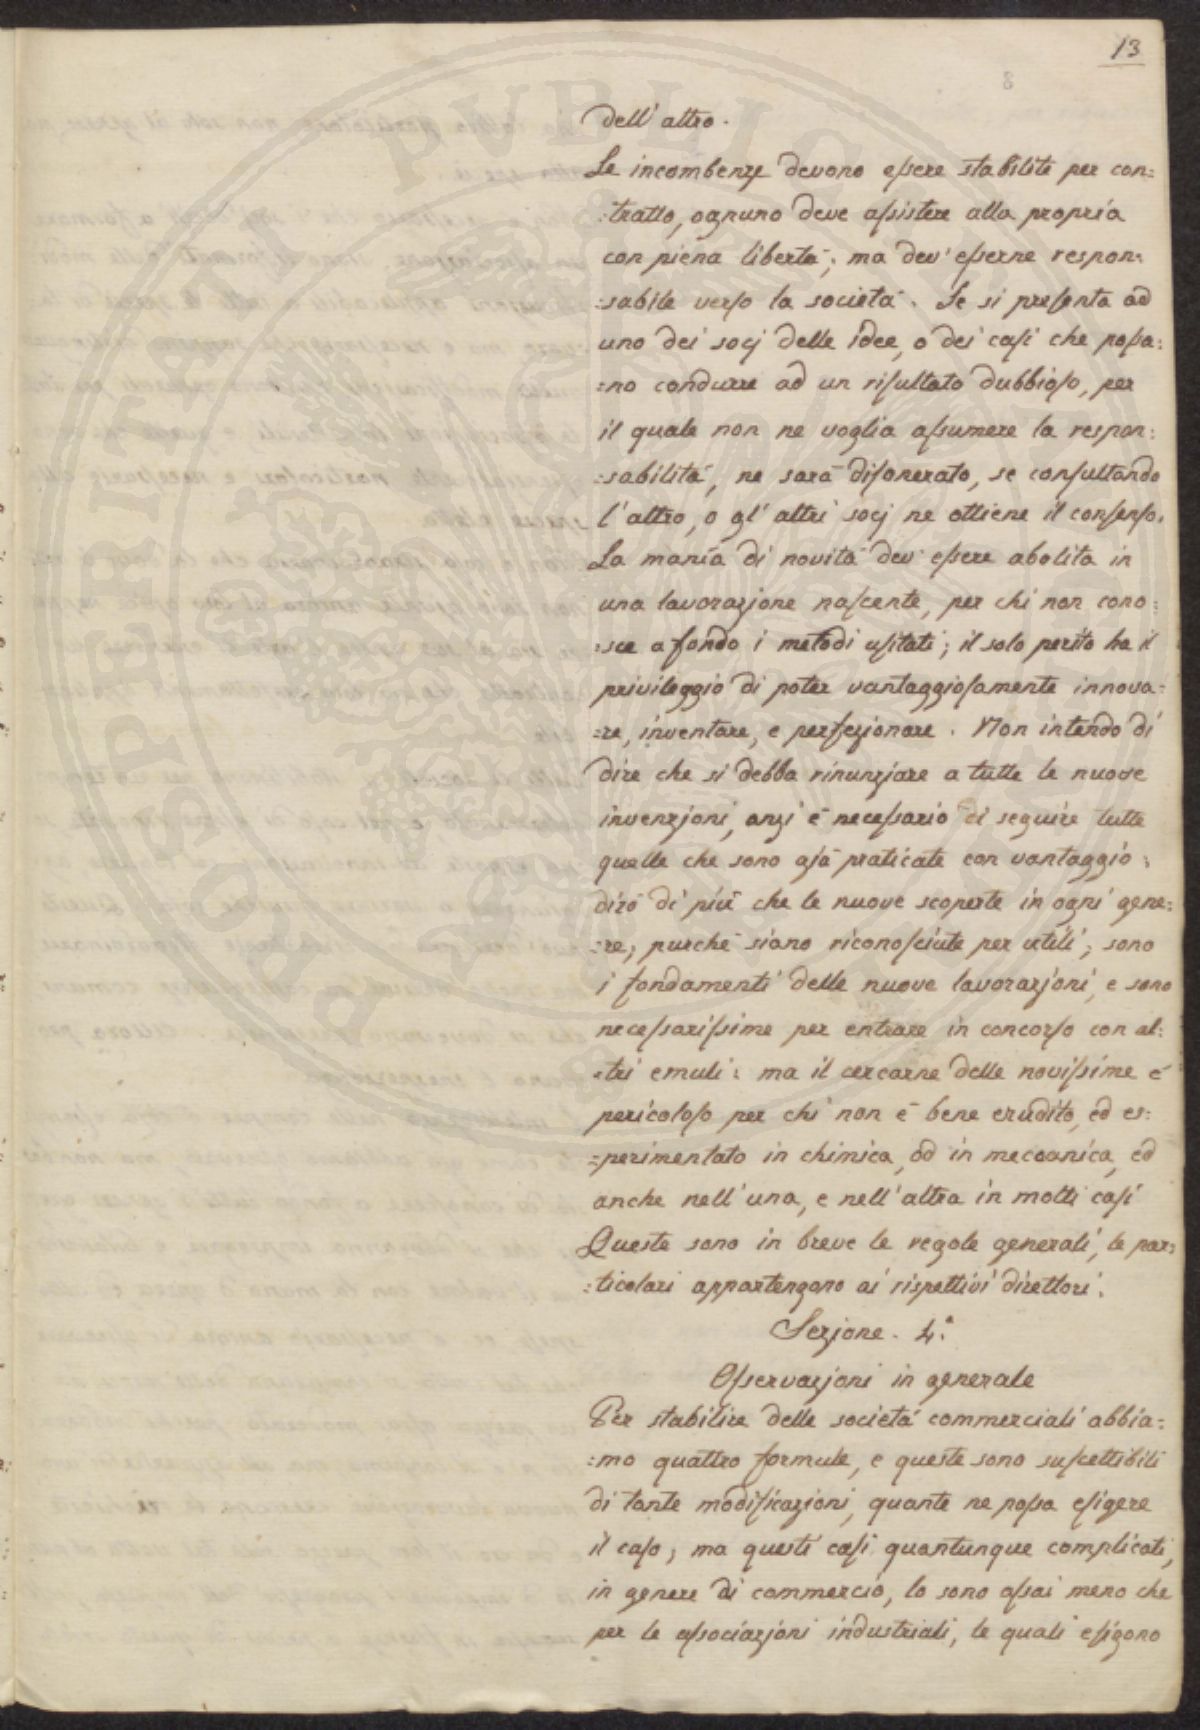 13
dell'altro.
Le incombenze devono essere stabilite per con:
:tratto, ognuno deve assistere alla propria
con piena libertà; ma dev'esserne respon:
:sabile verso la società. Se si presenta ad
uno dei socj delle idee, o dei casi che possa:
:no condurre ad un risultato dubbioso, per
il quale non ne voglia assumere la respon:
:sabilità, ne sarà disonerato, se consultando
l'altro, o gl'altri socj ne ottiene il consenso.
La mania di novità dev'essere abolita in
una lavorazione nascente, per chi non cono:
:sce a fondo i metodi usitati; il solo perito ha il
privileggio di poter vantaggiosamente innova:
:re, inventare, e perfezionare. Non intendo di
dire che si debba rinunziare a tutte le nuove
invenzioni, anzi è necessario di seguire tutte
quelle che sono già praticate con vantaggio:
dirò di più che le nuove scoperte in ogni gene:
:re, purché siano riconosciute per utili, sono
i fondamenti delle nuove lavorazioni, e sono
necessarissime per entrare in concorso con al:
:tri emuli: ma il cercarne delle novissime é
pericoloso per chi non è bene erudito, ed es:
:perimentato in chimica, od in meccanica, ed
anche nell'una, e nell'altra in molti casi
Queste sono in breve le regole generali, le par:
:ticolari appartengono ai rispettivi direttori.
Sezione. 4.ª
Osservazioni in generale
Per stabilire delle società commerciali abbia:
:mo quattro formule, e queste sono suscettibili
di tante modificazioni, quante ne possa esigere
il caso; ma questi casi quantunque complicati,
in genere di commercio, lo sono assai meno che
per le associazioni industriali, le quali esigono